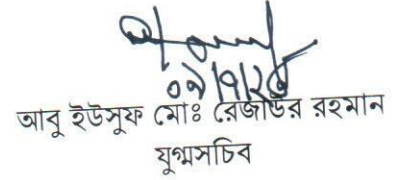 আবু ইউসুফ মোঃ রেজাউর রহমান
যুগ্মসচিব